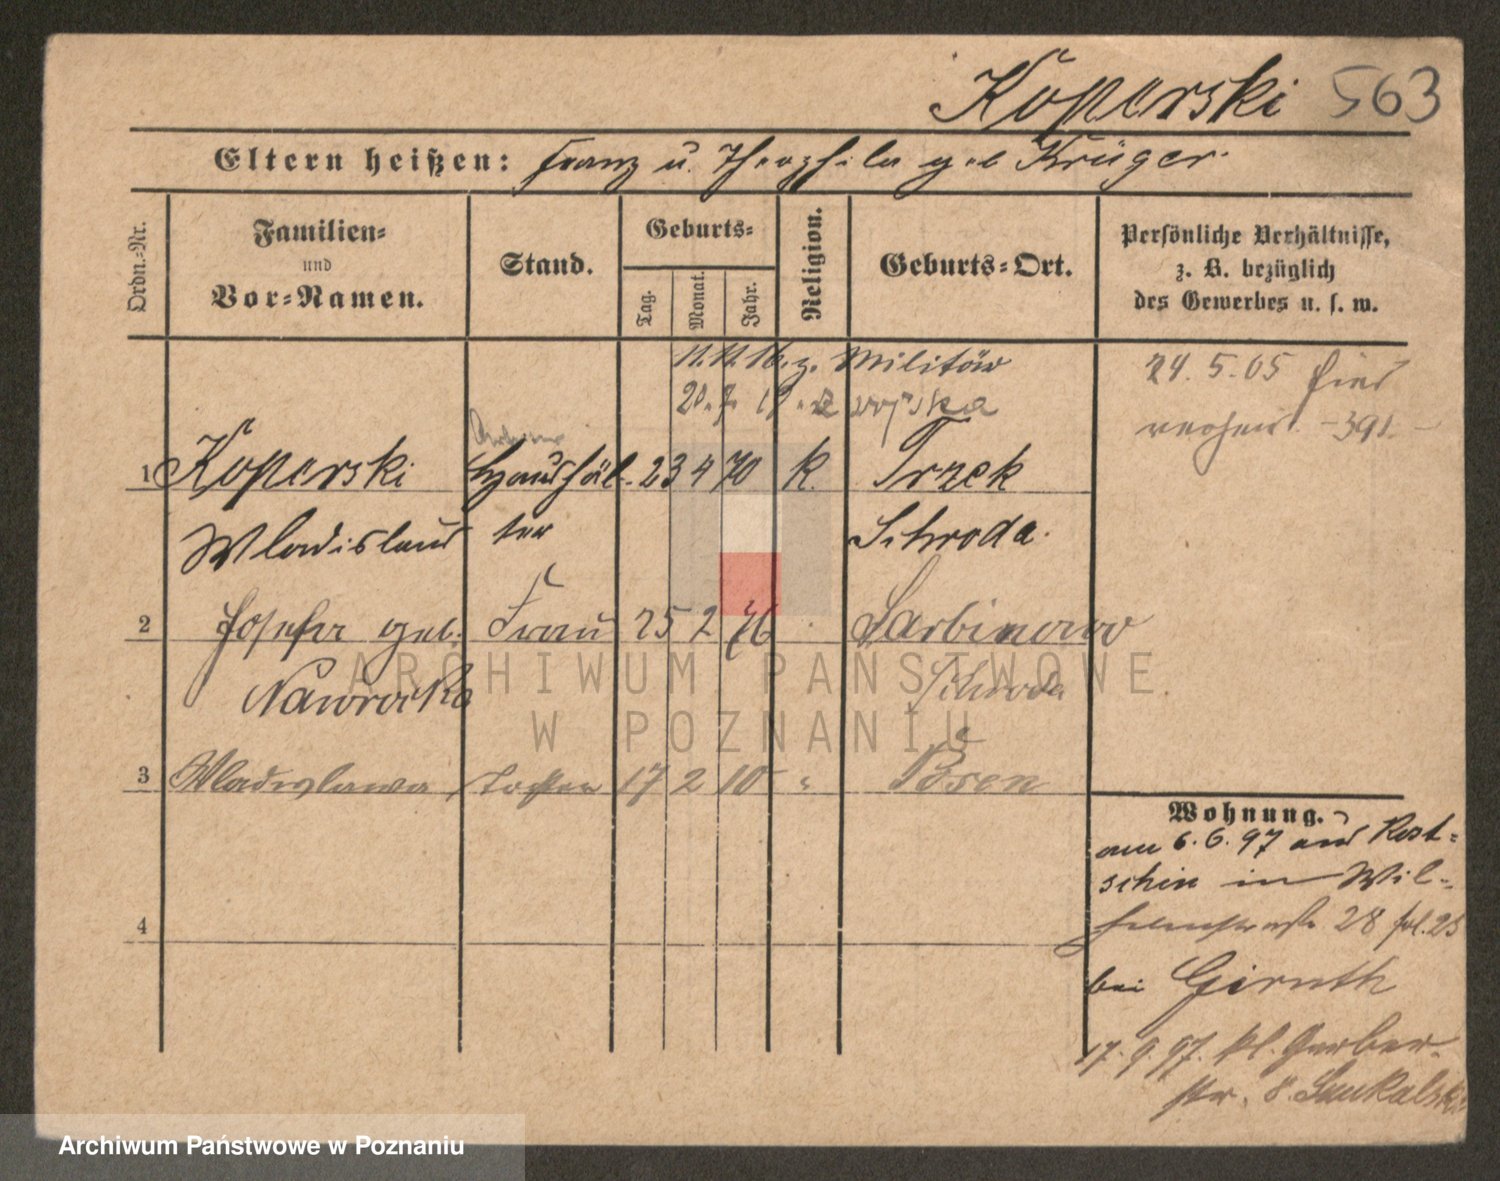 Koperski 563
Eltern heißen: Franz u. Theophila geb Krüger.
Ordn.-Nr.
Familien-
und
Vor-Namen.
Stand.
Geburts-
Tag.
Monat.
Jahr.
Religion.
Geburts-Ort.
Persönliche Verhältnisse,
z. B. bezüglich
des Gewerbes u. s. w.
11.11.16. z. Militär
20.7.19. z wojska
24.5.05 hier
391.
1 Koperski Haushäl- 23 4 70 k. Trzek
Wladislaus ter Schroda.
2 Josefa geb. Frau 25 2 76 Sarbinowo
Nawrocka Schroda
3 Wladyslawa Tochter 17 2 10 " Posen
4
Wohnung.
am 6.6.97 aus Kost-
schin in Wil-
helmstraße 28 fol. 23
bei Girnth
17.9.97. kl. Gerber-
str. 8.
ARCHIWUM PAŃSTWOWE
W POZNANIU
Archiwum Państwowe w Poznaniu